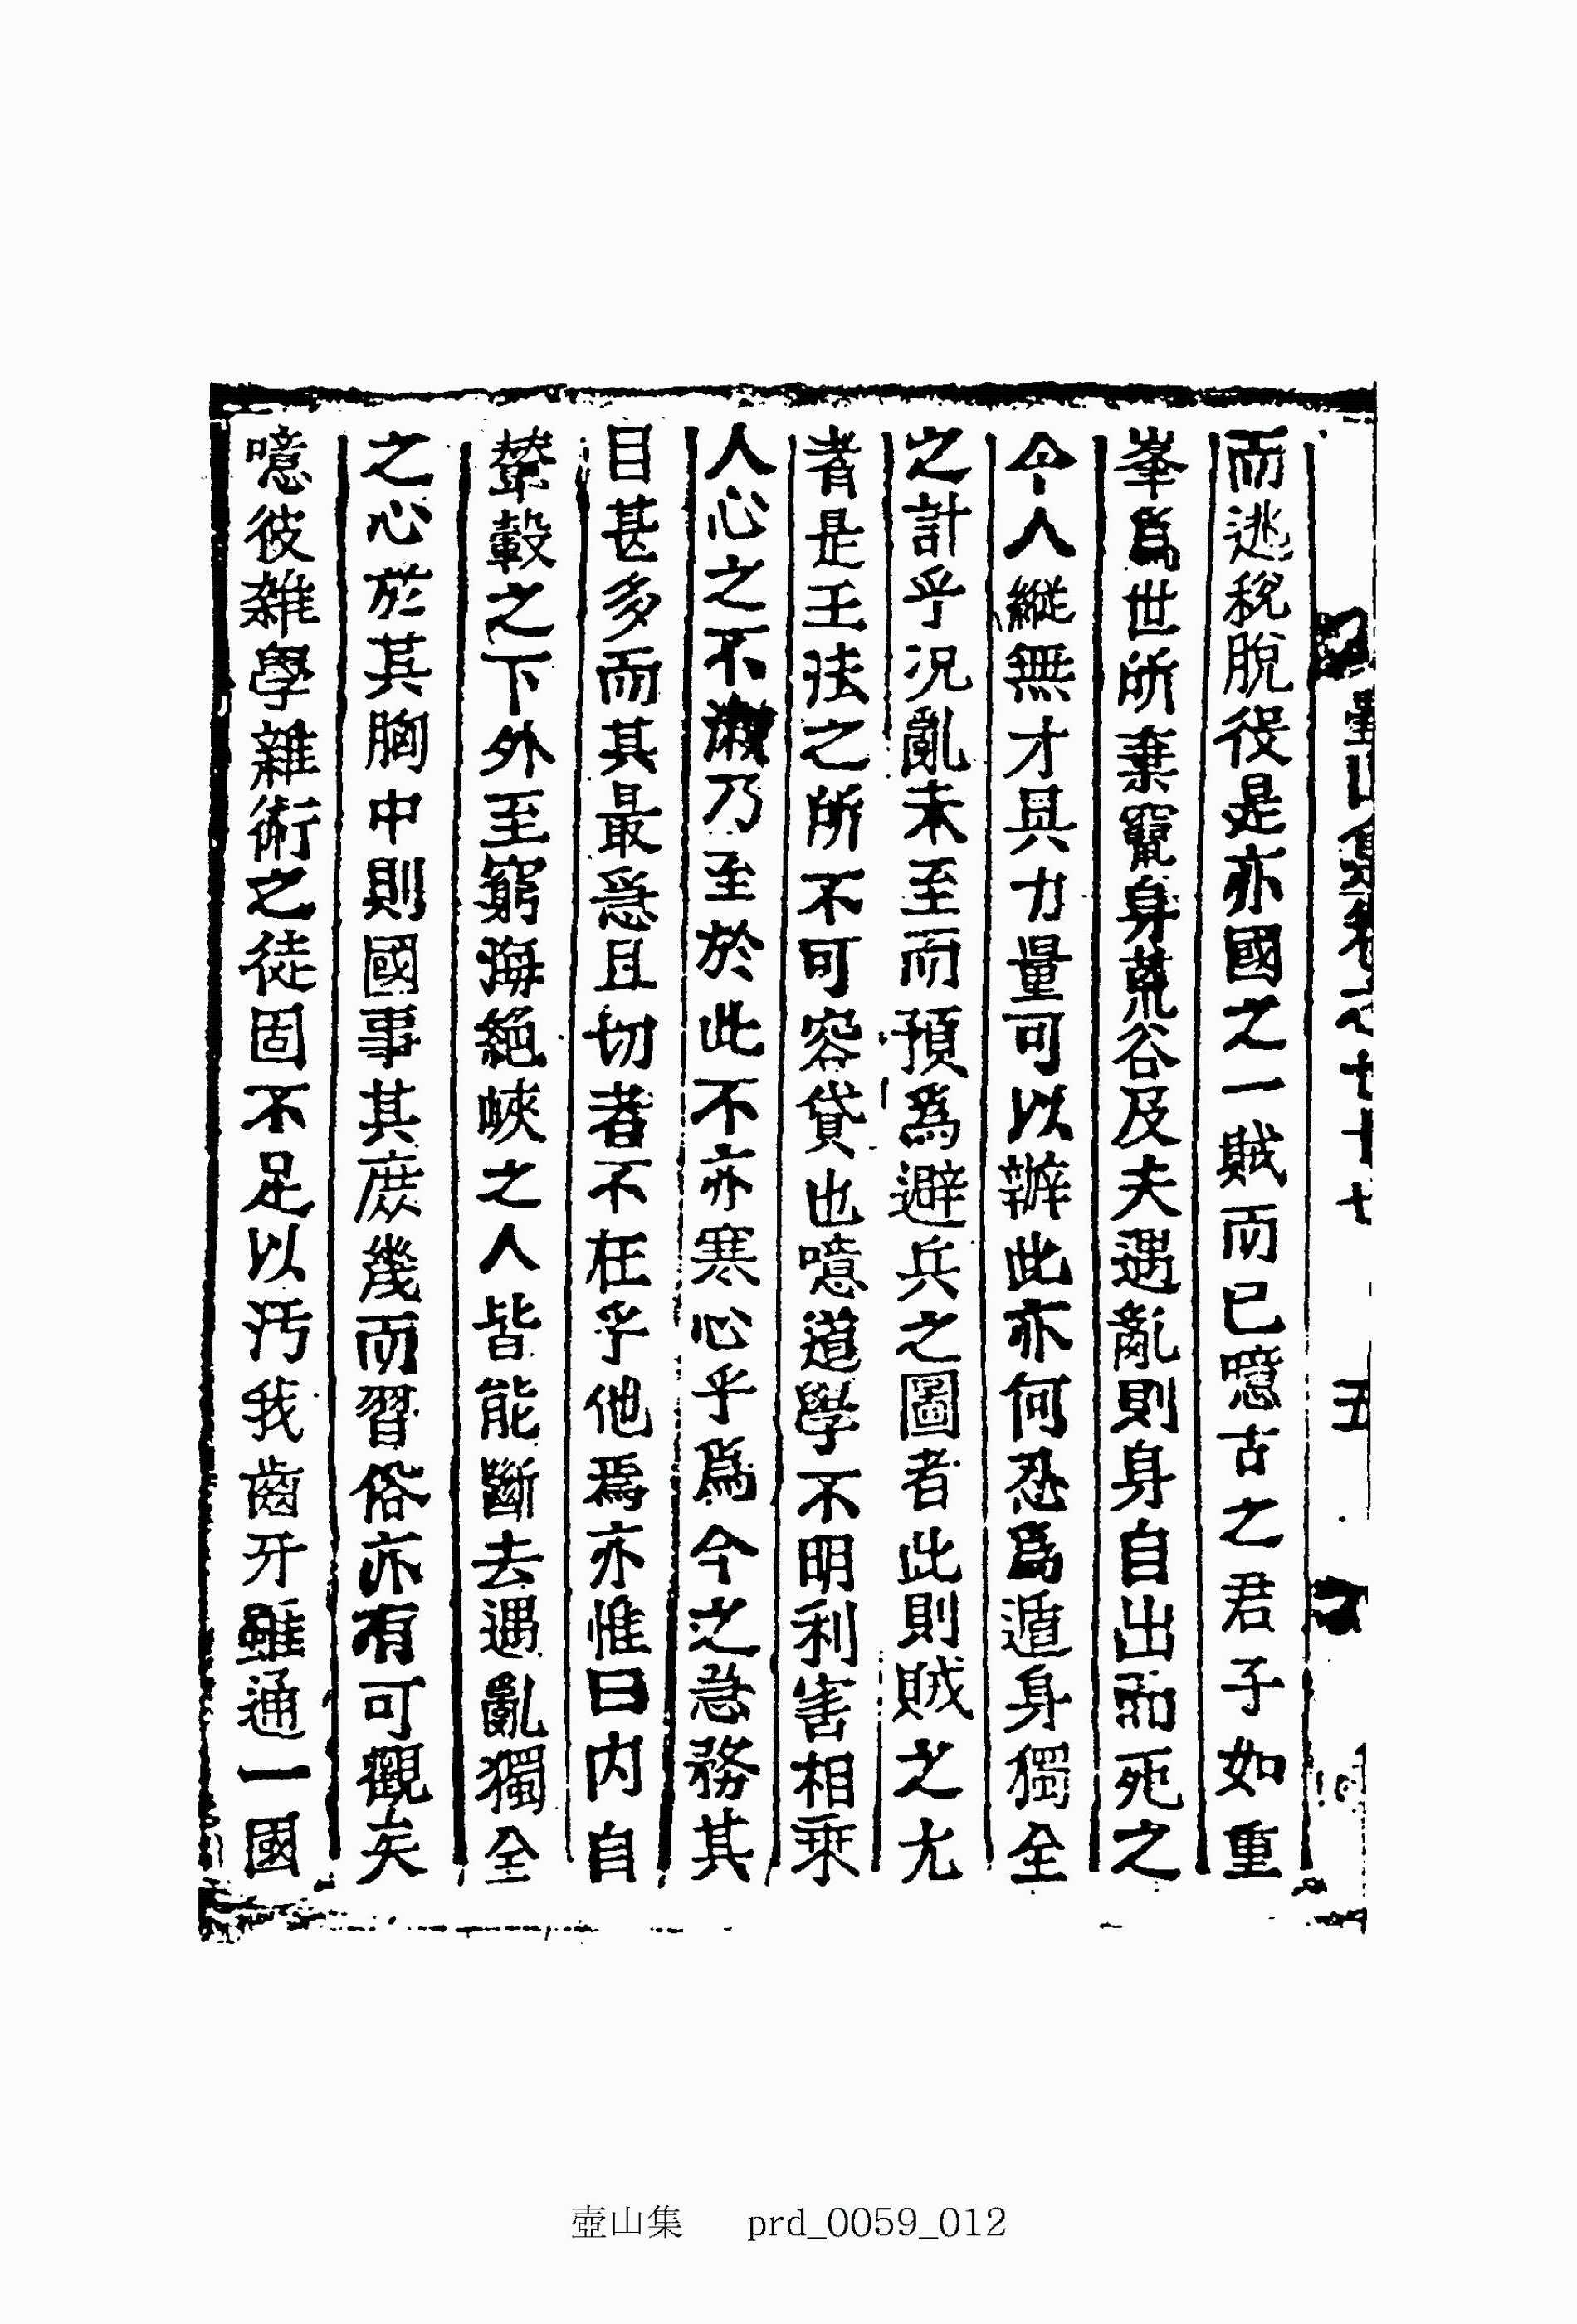 壺山集卷之七十七 五
而逃稅脫役是亦國之一賊而已噫古之君子如重
峯爲世所棄竄身荒谷及夫遇亂則身自出而死之
今人縱無才具力量可以辦此亦何忍爲遁身獨全
之計乎况亂未至而預爲避兵之圖者此則賊之尤
者是王法之所不可容貸也噫道學不明利害相乘
人心之不淑乃至於此不亦寒心乎爲今之急務其
目甚多而其最急且切者不在乎他焉亦惟曰内自
輦轂之下外至窮海絶峽之人皆能斷去遇亂獨全
之心於其胸中則國事其庶幾而習俗亦有可觀矣
噫彼雜學雜術之徒固不足以汚我齒牙雖通一國
壺山集 prd_0059_012